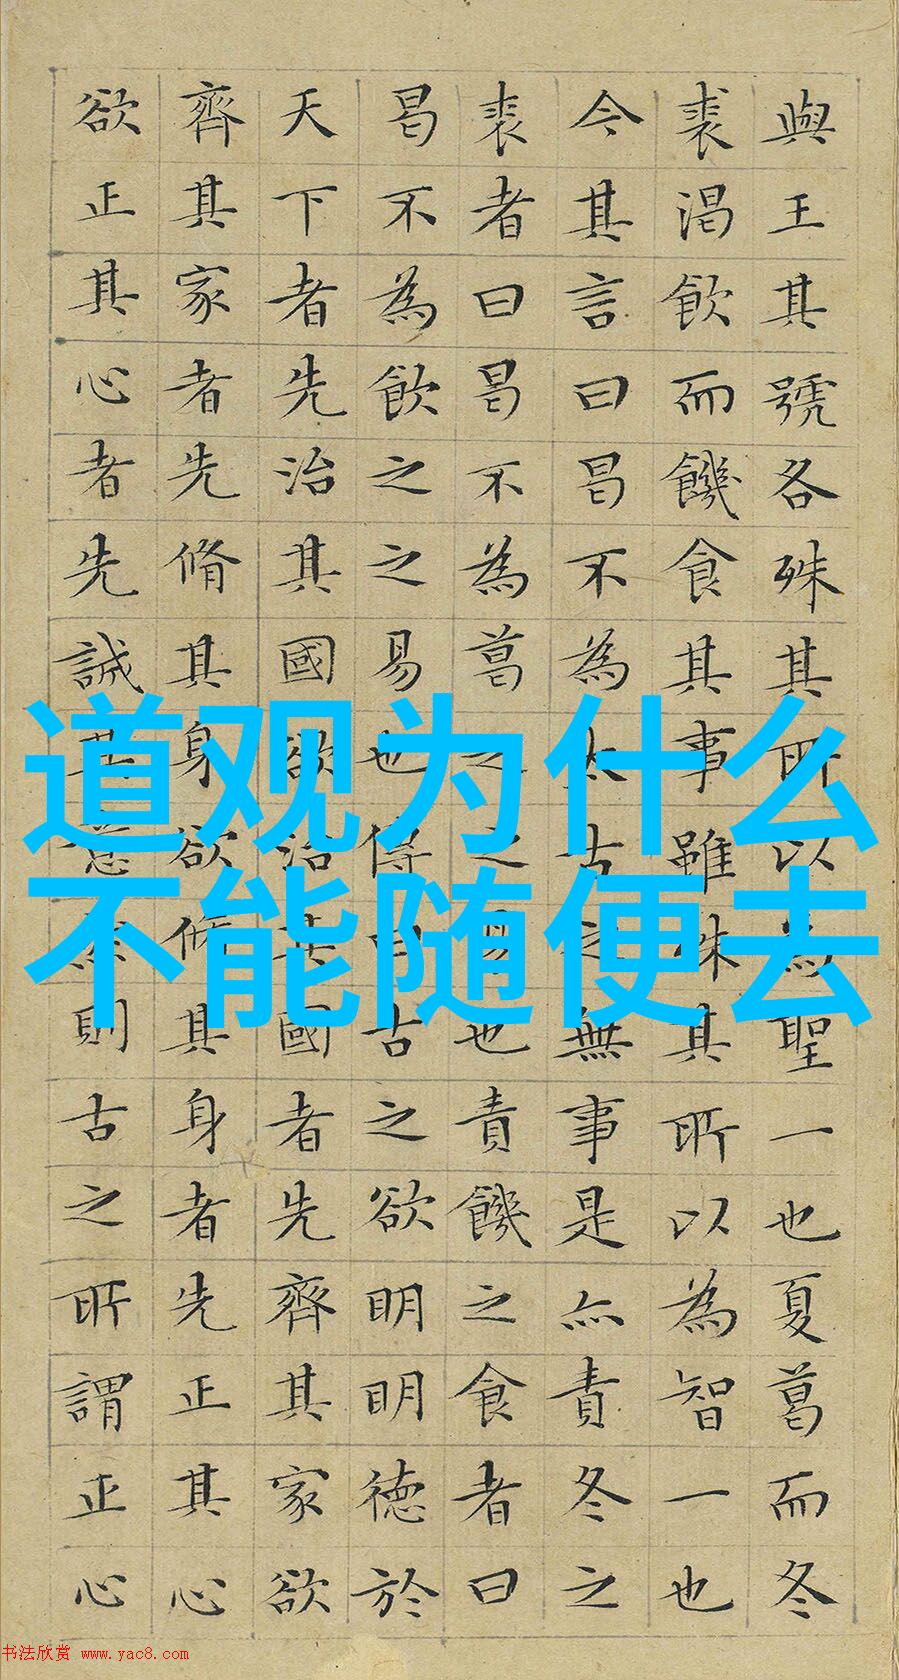 與王其號各殊其所以為聖一也夏葛而冬
裘渴飲而饑食其事雖殊其所以為智一也
今其言曰曷不為太古之無事是亦責冬之
裘者曰曷不為葛之之易也責饑之食者曰
曷不為飲之之易也傳曰古之欲明明德於
天下者先治其國欲治其國者先齊其家欲
齊其家者先脩其身欲脩其身者先正其心
欲正其心者先誠其意然則古之所謂正心
道观为什么
不能随便去
书法欣赏 www.yac8.com